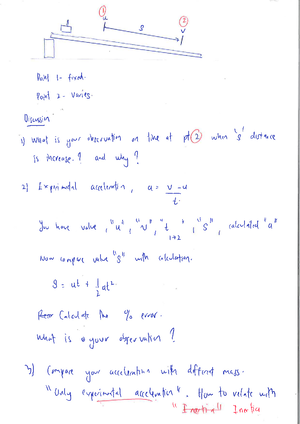 1
u
2
v
s
Point 1 - fixed.
Point 2 - varies.
Discussion
1) What is your observation on time at pt 2 when 's' distance
is increase. ? and why ?
2) Experimental acceleration, a = v - u
t
You have value, "u", "v", "t 1→2", "s", calculated "a"
Now compare value "s" with calculation.
S = ut + 1/2 at²
Calculate the % error.
What is your observation ?
3) Compare your acceleration with different mass.
"Only experimental acceleration". How to relate with
Inertia